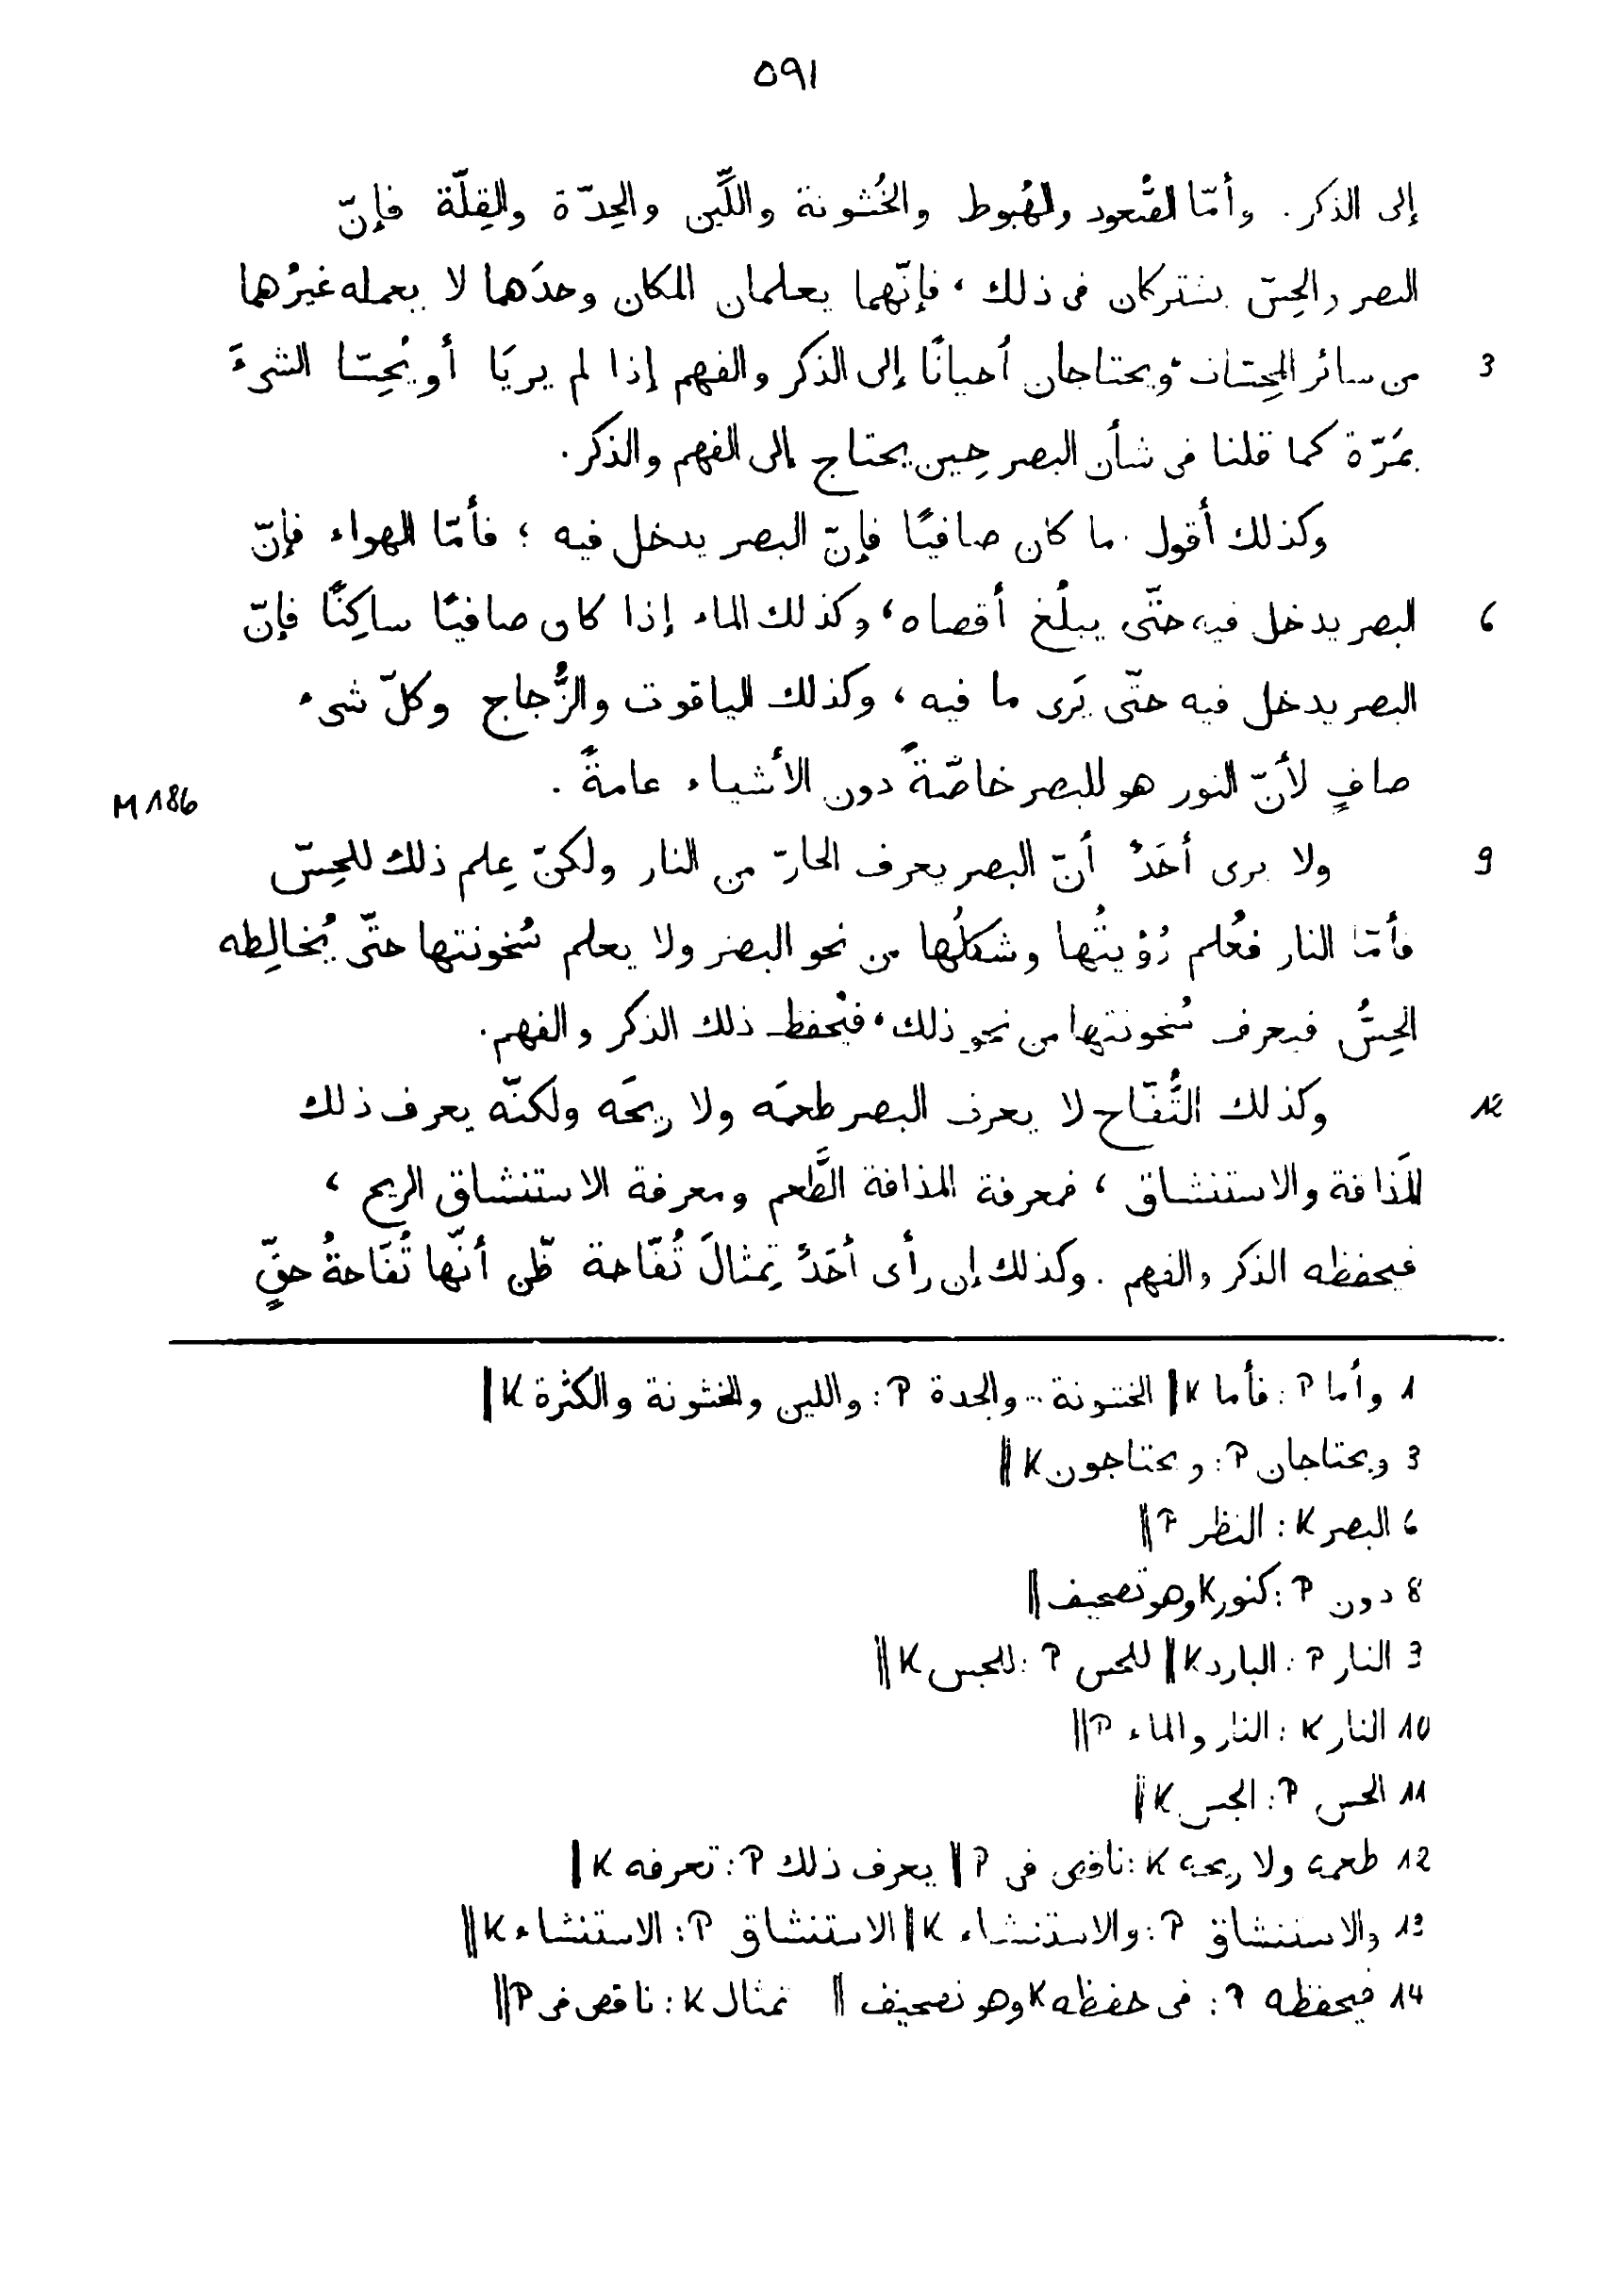 ٥٩١
إلى الذكر. وأمّا الصُّعود والهُبوط والخُشونة واللَّيِّن والحِدّة والقِلّة فإنّ
البصر والحِسّ يشتركان فى ذلك ، فإنّهما يعلمان المكان وحدَهما لا يعمله غيرُهما
3 من سائر المِحسّات ، ويحتاجان أحيانًا إلى الذكر والفهم إذا لم يريَا أو يُحِسّا الشىءَ
بمَرّة كما قلنا فى شأن البصر حِين يحتاج إلى الفهم والذكر.
وكذلك أقول . ما كان صافيًا فإنّ البصر يدخل فيه ؛ فأمّا الهواء فإنّ
6 البصر يدخل فيه حتّى يبلُغ أقصاه ، وكذلك الماء إذا كان صافيًا ساكِنًا فإنّ
البصر يدخل فيه حتّى يَرى ما فيه ، وكذلك الياقوت والزُّجاج وكلّ شىء
صافٍ لأنّ النور هو للبصر خاصّةً دون الأشياء عامةً .
M 186
9 ولا يرى أحَدٌ أنّ البصر يعرف الحارّ من النار ولكنّ عِلم ذلك للحِسّ
فأمّا النار فعُلم رُؤيتُها وشكلُها من نحو البصر ولا يعلم سُخونتها حتّى يُخالِطه
الحِسُّ فيعرف سُخونتها من نحو ذلك ، فيُحفظ ذلك الذكر والفهم.
12 وكذلك التُّفّاح لا يعرف البصر طعمَه ولا ريحَه ولكنّه يعرف ذلك
للمَذاقة والاستنشاق ، فمعرفة المذاقة الطَّعم ومعرفة الاستنشاق الريح ،
فيحفظه الذكر والفهم . وكذلك إن رأى أحَدٌ تِمثالَ تُفّاحة ظّن أنّها تُفّاحةُ حقٍّ
1 وأما P : فأما K ‖ الخشونة .. والحدة P : واللين والخشونة والكثرة K ‖
3 ويحتاجان P : ويحتاجون K ‖
6 البصر K : النظر P ‖
8 دون P : كنور K وهو تصحيف ‖
3 النار P : البارد K ‖ للحس P : للجس K ‖
10 النار K : النار والماء P ‖
11 الحس P : الجس K ‖
12 طعمه ولا ريحه K : ناقص فى P ‖ يعرف ذلك P : تعرفه K ‖
13 والاستنشاق P : والاستنشاء K ‖ الاستنشاق P : الاستنشاء K ‖
14 فيحفظه P : فى حفظه K وهو تصحيف ‖ تمثال K : ناقص فى P ‖